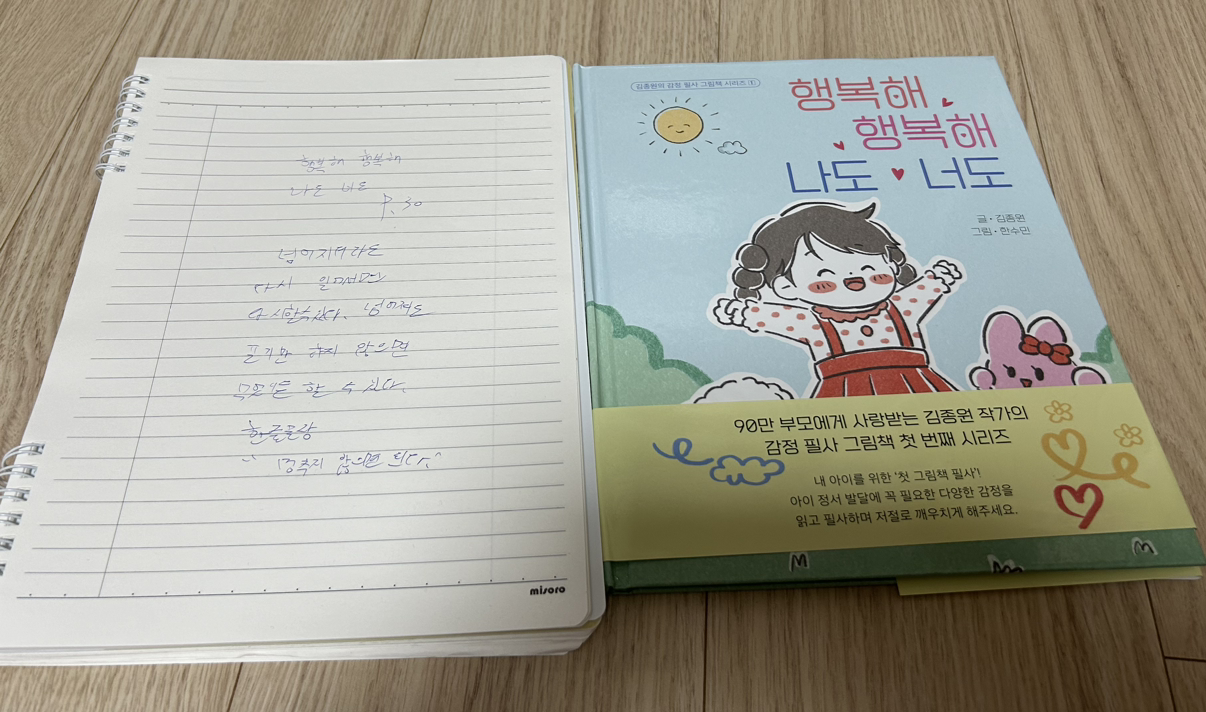 행복해 행복해
나도 너도
P. 30
넘어지더라도
다시 일어서면
다시 할 수 있다. 넘어져도
포기만 하지 않으면
무엇이든 할 수 있다.
한줄공감
" 멈추지 않으면 된다."
misoro
김종원의 감정 필사 그림책 시리즈 ①
행복해
행복해
나도 너도
글·김종원
그림·한수민
90만 부모에게 사랑받는 김종원 작가의
감정 필사 그림책 첫 번째 시리즈
내 아이를 위한 '첫 그림책 필사'!
아이 정서 발달에 꼭 필요한 다양한 감정을
읽고 필사하며 저절로 깨우치게 해주세요.